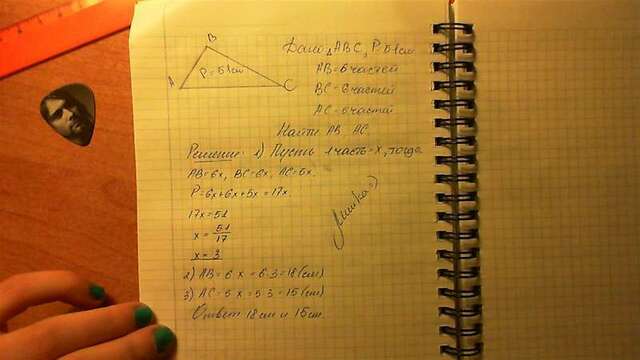 B
A
C
P=51см
Дано: △ABC, P=51см
AB=6 частей
BC=6 частей
AC=5 частей
Найти AB AC.
Решение: 1) Пусть 1 часть=x, тогда
AB=6x, BC=6x, AC=5x.
P=6x+6x+5x=17x.
17x=51
x = 51/17
x = 3
2) AB=6·x=6·3=18(см)
3) AC=5·x=5·3=15(см)
Ответ 18см и 15см.